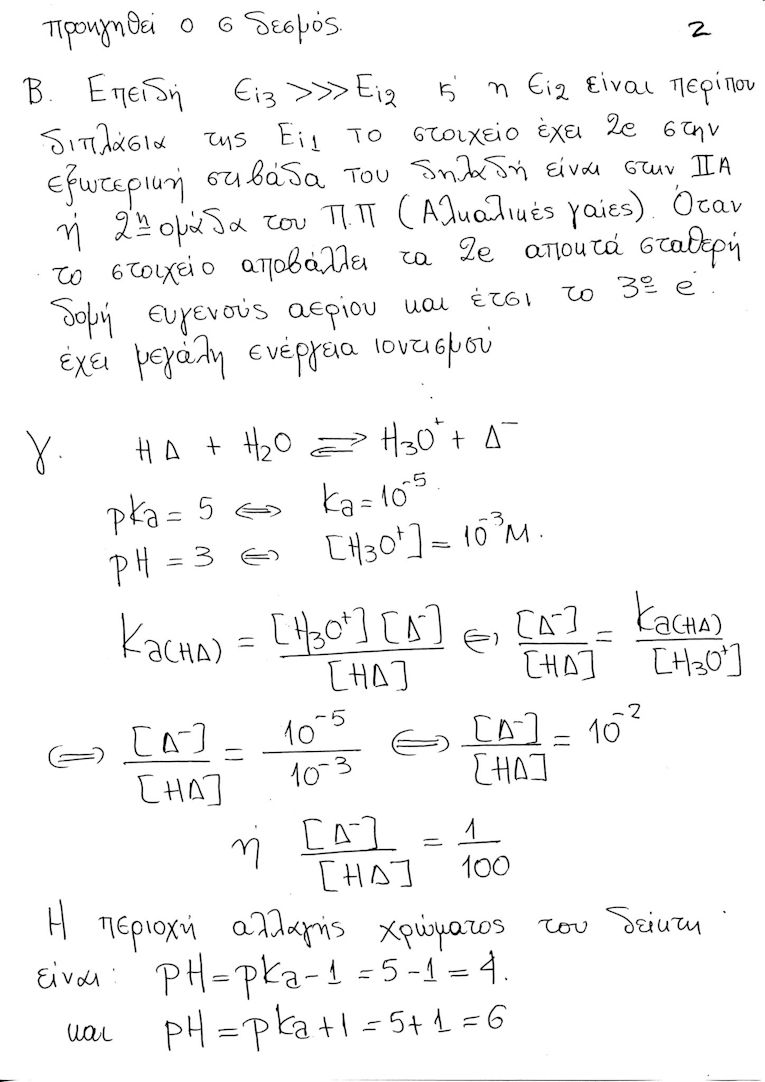 προηγηθεί ο σ δεσμός. 2
Β. Επειδή Ei3 >>> Ei2 κ' η Ei2 είναι περίπου
διπλάσια της Ei1 το στοιχείο έχει 2e στην
εξωτερική στιβάδα του δηλαδή είναι στην ΙΙΑ
ή 2η ομάδα του Π.Π (Αλκαλικές γαίες). Όταν
το στοιχείο αποβάλλει τα 2e αποκτά σταθερή
δομή ευγενούς αερίου και έτσι το 3ο e
έχει μεγάλη ενέργεια ιοντισμού
γ. ΗΔ + H2O ⇌ H3O⁺ + Δ⁻
pka = 5 ⇔ ka = 10⁻⁵.
pH = 3 ⇔ [H3O⁺] = 10⁻³M.
Ka(HΔ) = [H3O⁺][Δ⁻] / [HΔ] ⇔ [Δ⁻] / [HΔ] = ka(HΔ) / [H3O⁺]
⇔ [Δ⁻] / [HΔ] = 10⁻⁵ / 10⁻³ ⇔ [Δ⁻] / [HΔ] = 10⁻²
ή [Δ⁻] / [HΔ] = 1 / 100
Η περιοχή αλλαγής χρώματος του δείκτη
είναι: pH = pka - 1 = 5 - 1 = 4.
και pH = pka + 1 = 5 + 1 = 6